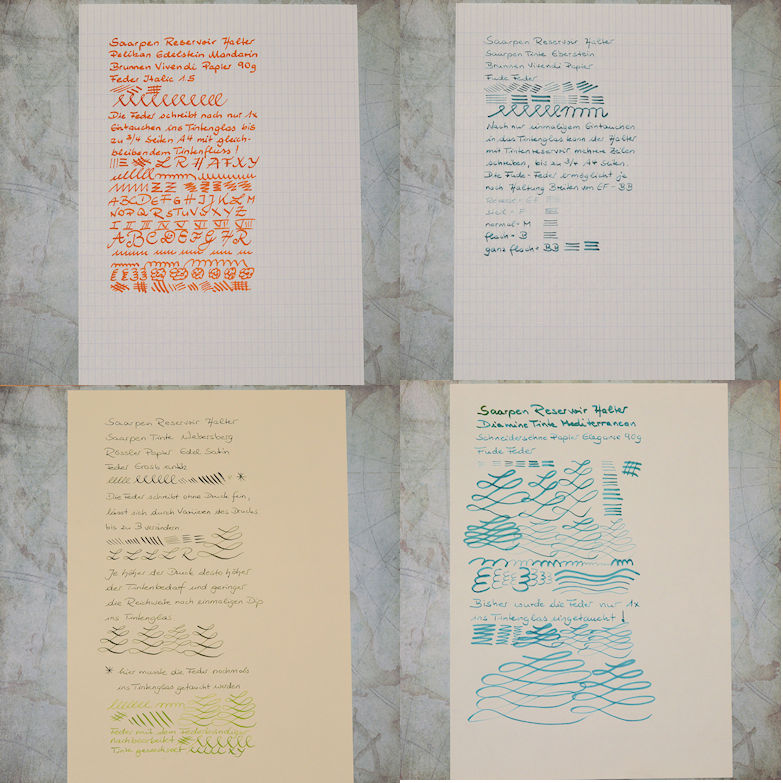 Saarpen Reservoir Halter
Pelikan Edelstein Mandarin
Brunnen Vivendi Papier 90g
Feder Italic 1.5
Die Feder schreibt nach nur 1x
Eintauchen ins Tintenglas bis
zu 3/4 Seiten A4 mit gleich-
bleibendem Tintenfluss!
L R H A F X Y
Z Z
A B C D E F G H I J K L M
N O P Q R S T U V S X Y Z
I II III IV V VI VII
A B C D E F G H R
Saarpen Reservoir Halter
Saarpen Tinte Eberstein
Brunnen Vivendi Papier
Fude Feder
Nach nur einmaligem Eintauchen
in das Tintenglas kann der Halter
mit Tintenreservoir mehrere Zeilen
schreiben, bis zu 3/4 A4 Seiten.
Die Fude-Feder ermöglicht je
nach Haltung Breiten von EF - BB
= EF
steil = F
normal = M
flach = B
ganz flach = BB
Saarpen Reservoir Halter
Saarpen Tinte Nebersberg
Rössler Papier Edel Satin
Feder antik
Die Feder schreibt ohne Druck fein,
lässt sich durch Variieren des Drucks
bis zu B verändern.
L L L L R
Je höher der Druck desto höher
der Tintenbedarf und geringer
die Reichweite nach einmaligen Dip
ins Tintenglas
* hier musste die Feder nochmals
ins Tintenglas getaucht werden
Feder mit dem Federbändiger
nachbearbeitet
Tinte gewechselt
Saarpen Reservoir Halter
Diamine Tinte Mediterranean
Schneidersöhne Papier 90g
Fude Feder
Bisher wurde die Feder nur 1x
ins Tintenglas eingetaucht!